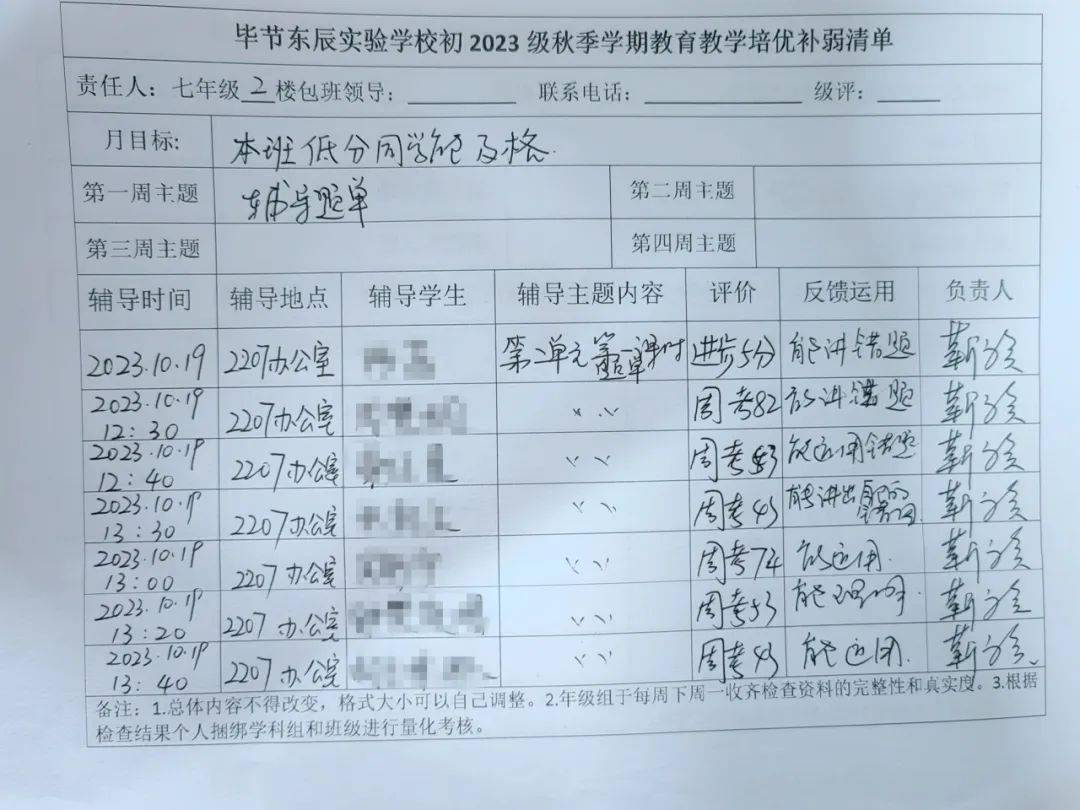 毕节东辰实验学校初 2023 级秋季学期教育教学培优补弱清单
责任人：七年级 2 楼包班领导：________ 联系电话：____________ 级评：_____
月目标： 本班低分同学能及格.
第一周主题 辅导题单 第二周主题
第三周主题 第四周主题
辅导时间 辅导地点 辅导学生 辅导主题内容 评价 反馈运用 负责人
2023.10.19 2207办公室 第二单元第一课时题单 进步5分 能讲错题
2023.10.19 12:30 2207办公室 〃 周考82 能讲错题
2023.10.19 12:40 2207办公室 〃 周考 能运用错题
2023.10.19 13:30 2207办公室 〃 周考43 能讲出
2023.10.19 13:00 2207办公室 〃 周考74 能运用.
2023.10.19 13:20 2207办公室 〃 周考53 能
2023.10.19 13:40 2207办公室 〃 周考43 能运用.
备注：1.总体内容不得改变，格式大小可以自己调整。2.年级组于每周下周一收齐检查资料的完整性和真实度。3.根据
检查结果个人捆绑学科组和班级进行量化考核。